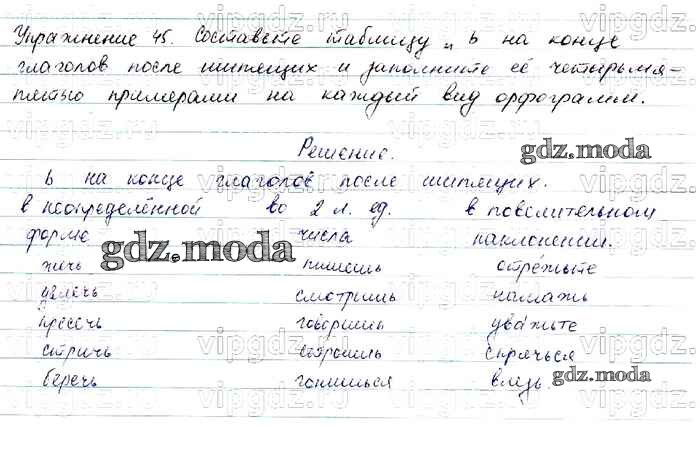 Упражнение 45. Составьте таблицу „ ь на конце
глаголов после шипящих и заполните её четырьмя-
пятью примерами на каждый вид орфограмм.
Решение.
gdz.moda
ь на конце глаголов после шипящих.
в неопределённой во 2 л. ед. в повелительном
форме числа наклонении.
gdz.moda
жечь пишешь отрежьте
увлечь смотришь намажь
пресечь говоришь уважьте
стричь строишь спрячься
беречь гонишься влезь.
gdz.moda